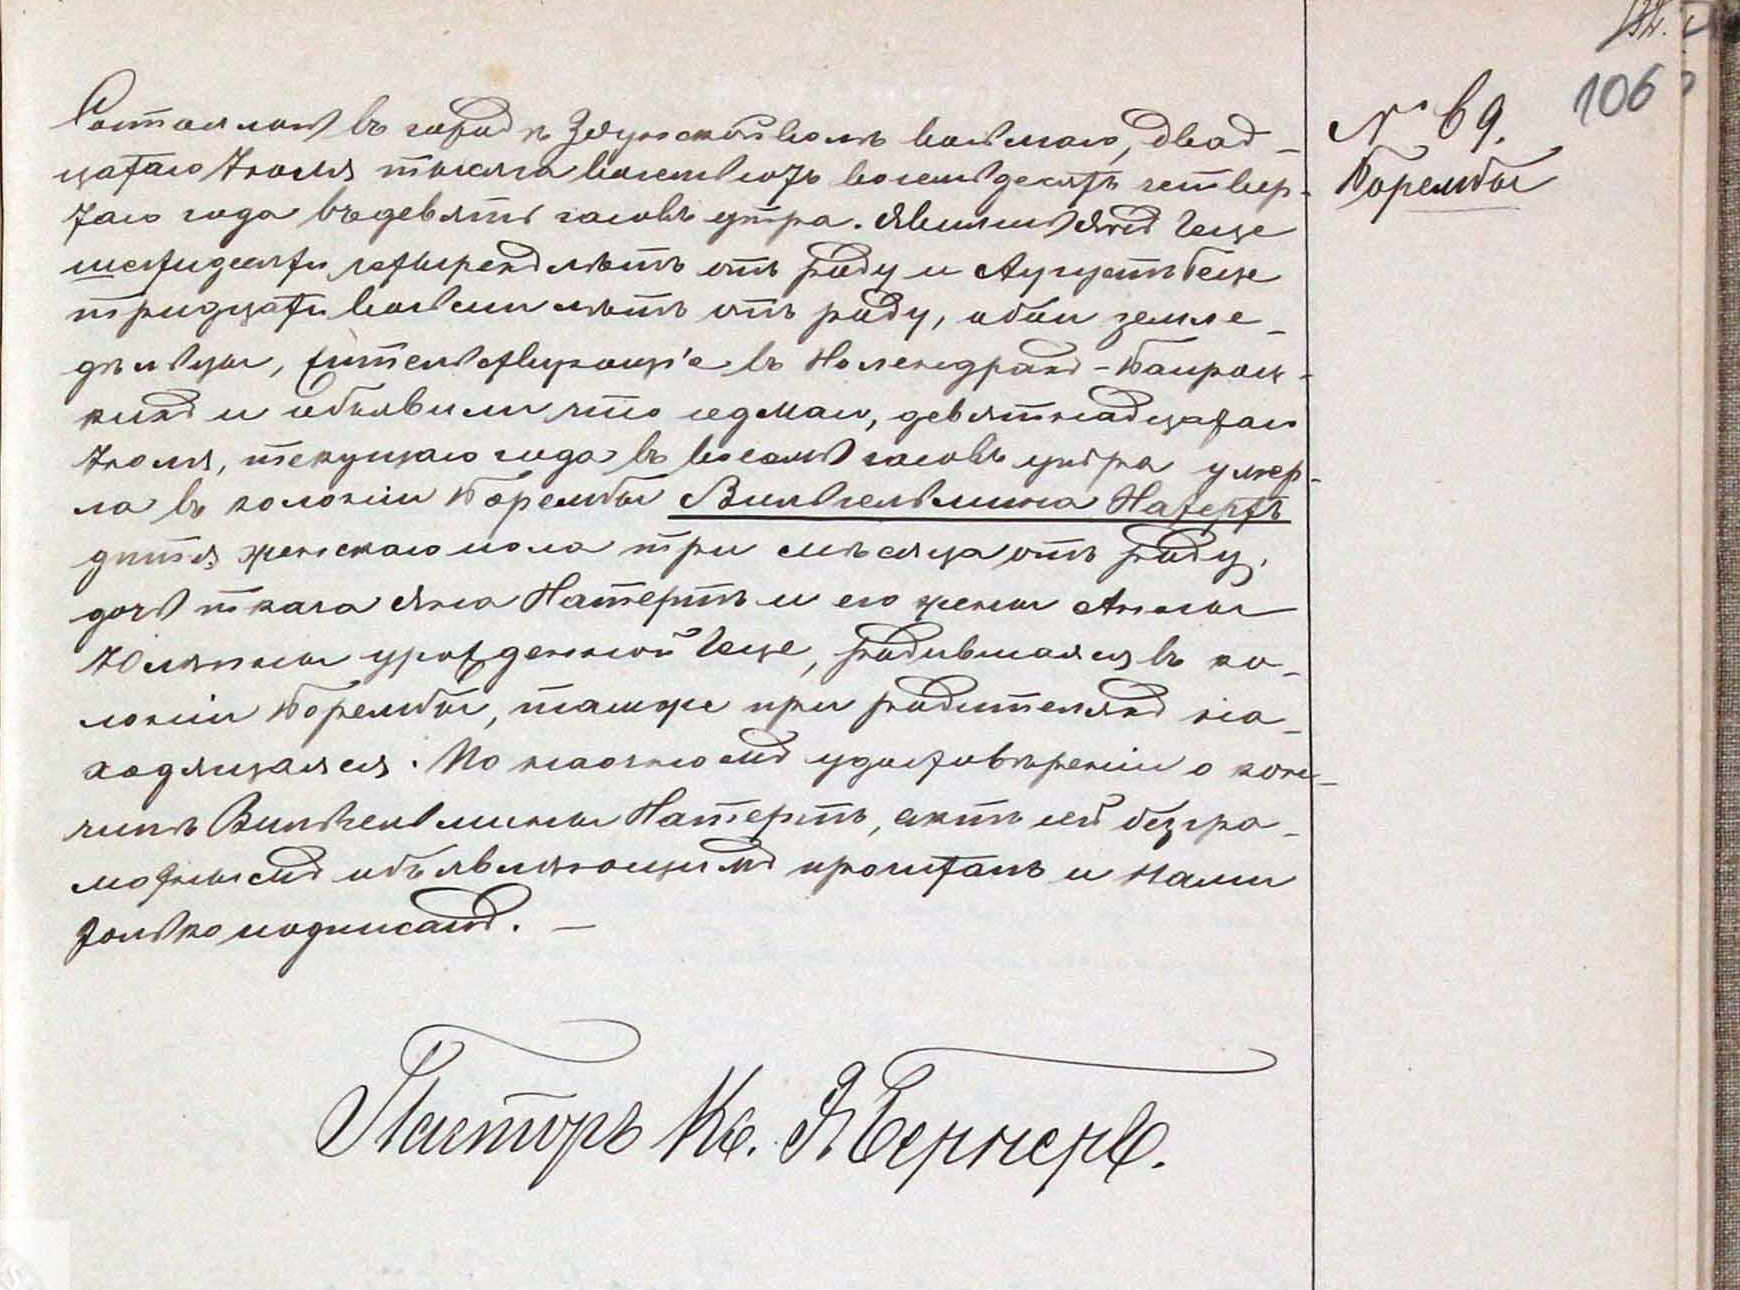 106
№ 69.
Порембы
Состоялось въ городѣ Здунской волѣ восьмаго, двад-
цатаго Іюля тысяча восемьсотъ восемьдесятъ четвер-
таго года въ девять часовъ утра. Явились Янъ Геце
шестидесяти четырехъ лѣтъ отъ роду и Аугустъ Геце
тридцати восьми лѣтъ отъ роду, оба земле-
дѣльцы, жительствующіе въ Холендрахъ-
кихъ и объявили что седмаго, девятнадцатаго
Іюля, текущаго года въ восемь часовъ утра умер-
ла въ колоніи Порембы Вильгельмина Натертъ
дитя женскаго пола три мѣсяца отъ роду,
дочь ткача Яна Натертъ и его жены Анны
Юлянны урожденной Геце, родившаяся въ ко-
лоніи Порембы, также при родителяхъ на-
ходящаяся. По наочномъ удостовѣреніи о кон-
чинѣ Вильгельмины Натертъ, актъ сей безгра-
мотнымъ объявляющимъ прочитанъ и Нами
только подписанъ. —
Пасторъ Кс. Э. Бернеръ.